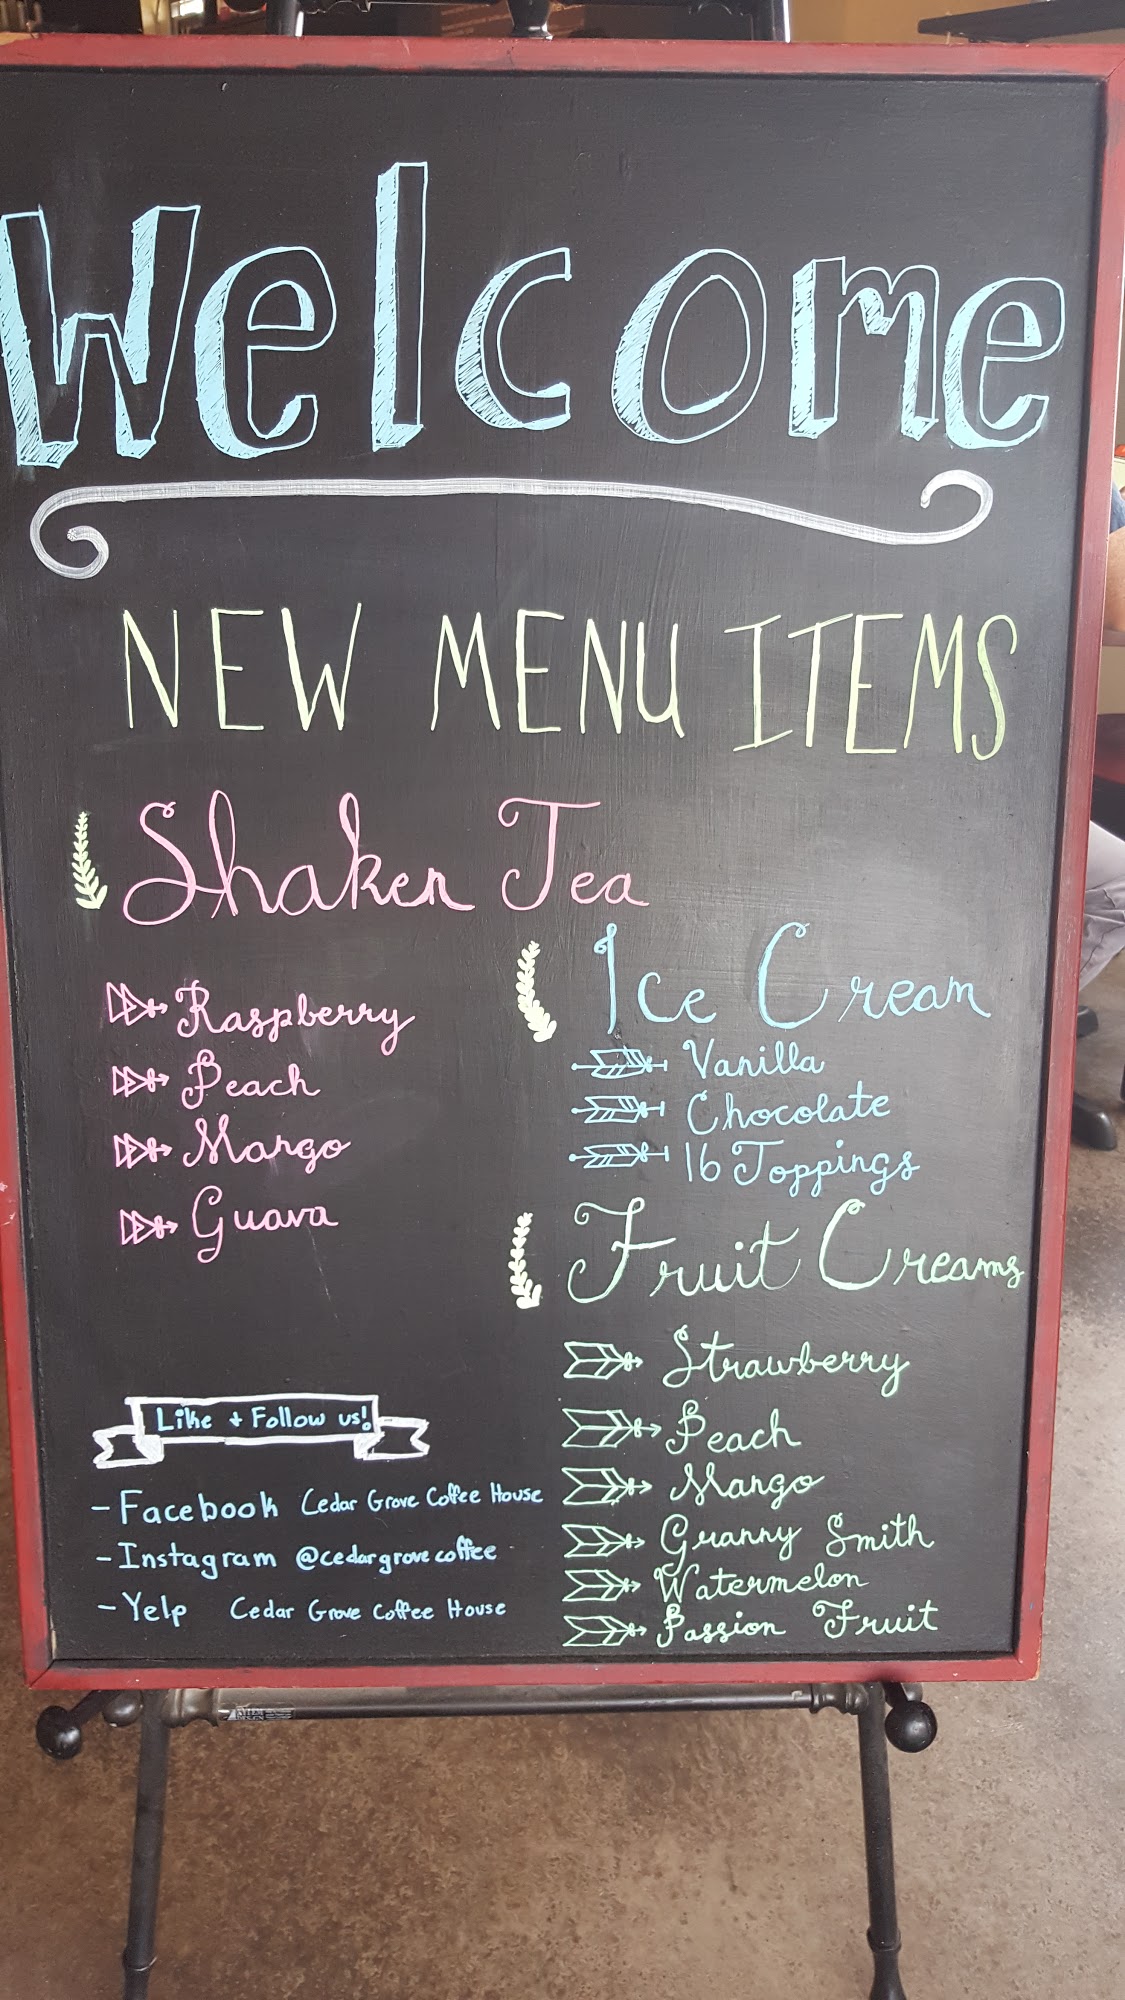 Welcome
NEW MENU ITEMS
Shaken Tea
Raspberry
Peach
Mango
Guava
Ice Cream
Vanilla
Chocolate
16 Toppings
Fruit Creams
Strawberry
Peach
Mango
Granny Smith
Watermelon
Passion Fruit
Like + Follow us!
- Facebook Cedar Grove Coffee House
- Instagram @cedargrovecoffee
- Yelp Cedar Grove Coffee House